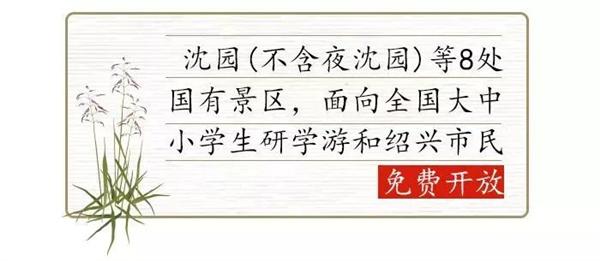 沈园(不含夜沈园)等8处
国有景区，面向全国大中
小学生研学游和绍兴市民
免费开放